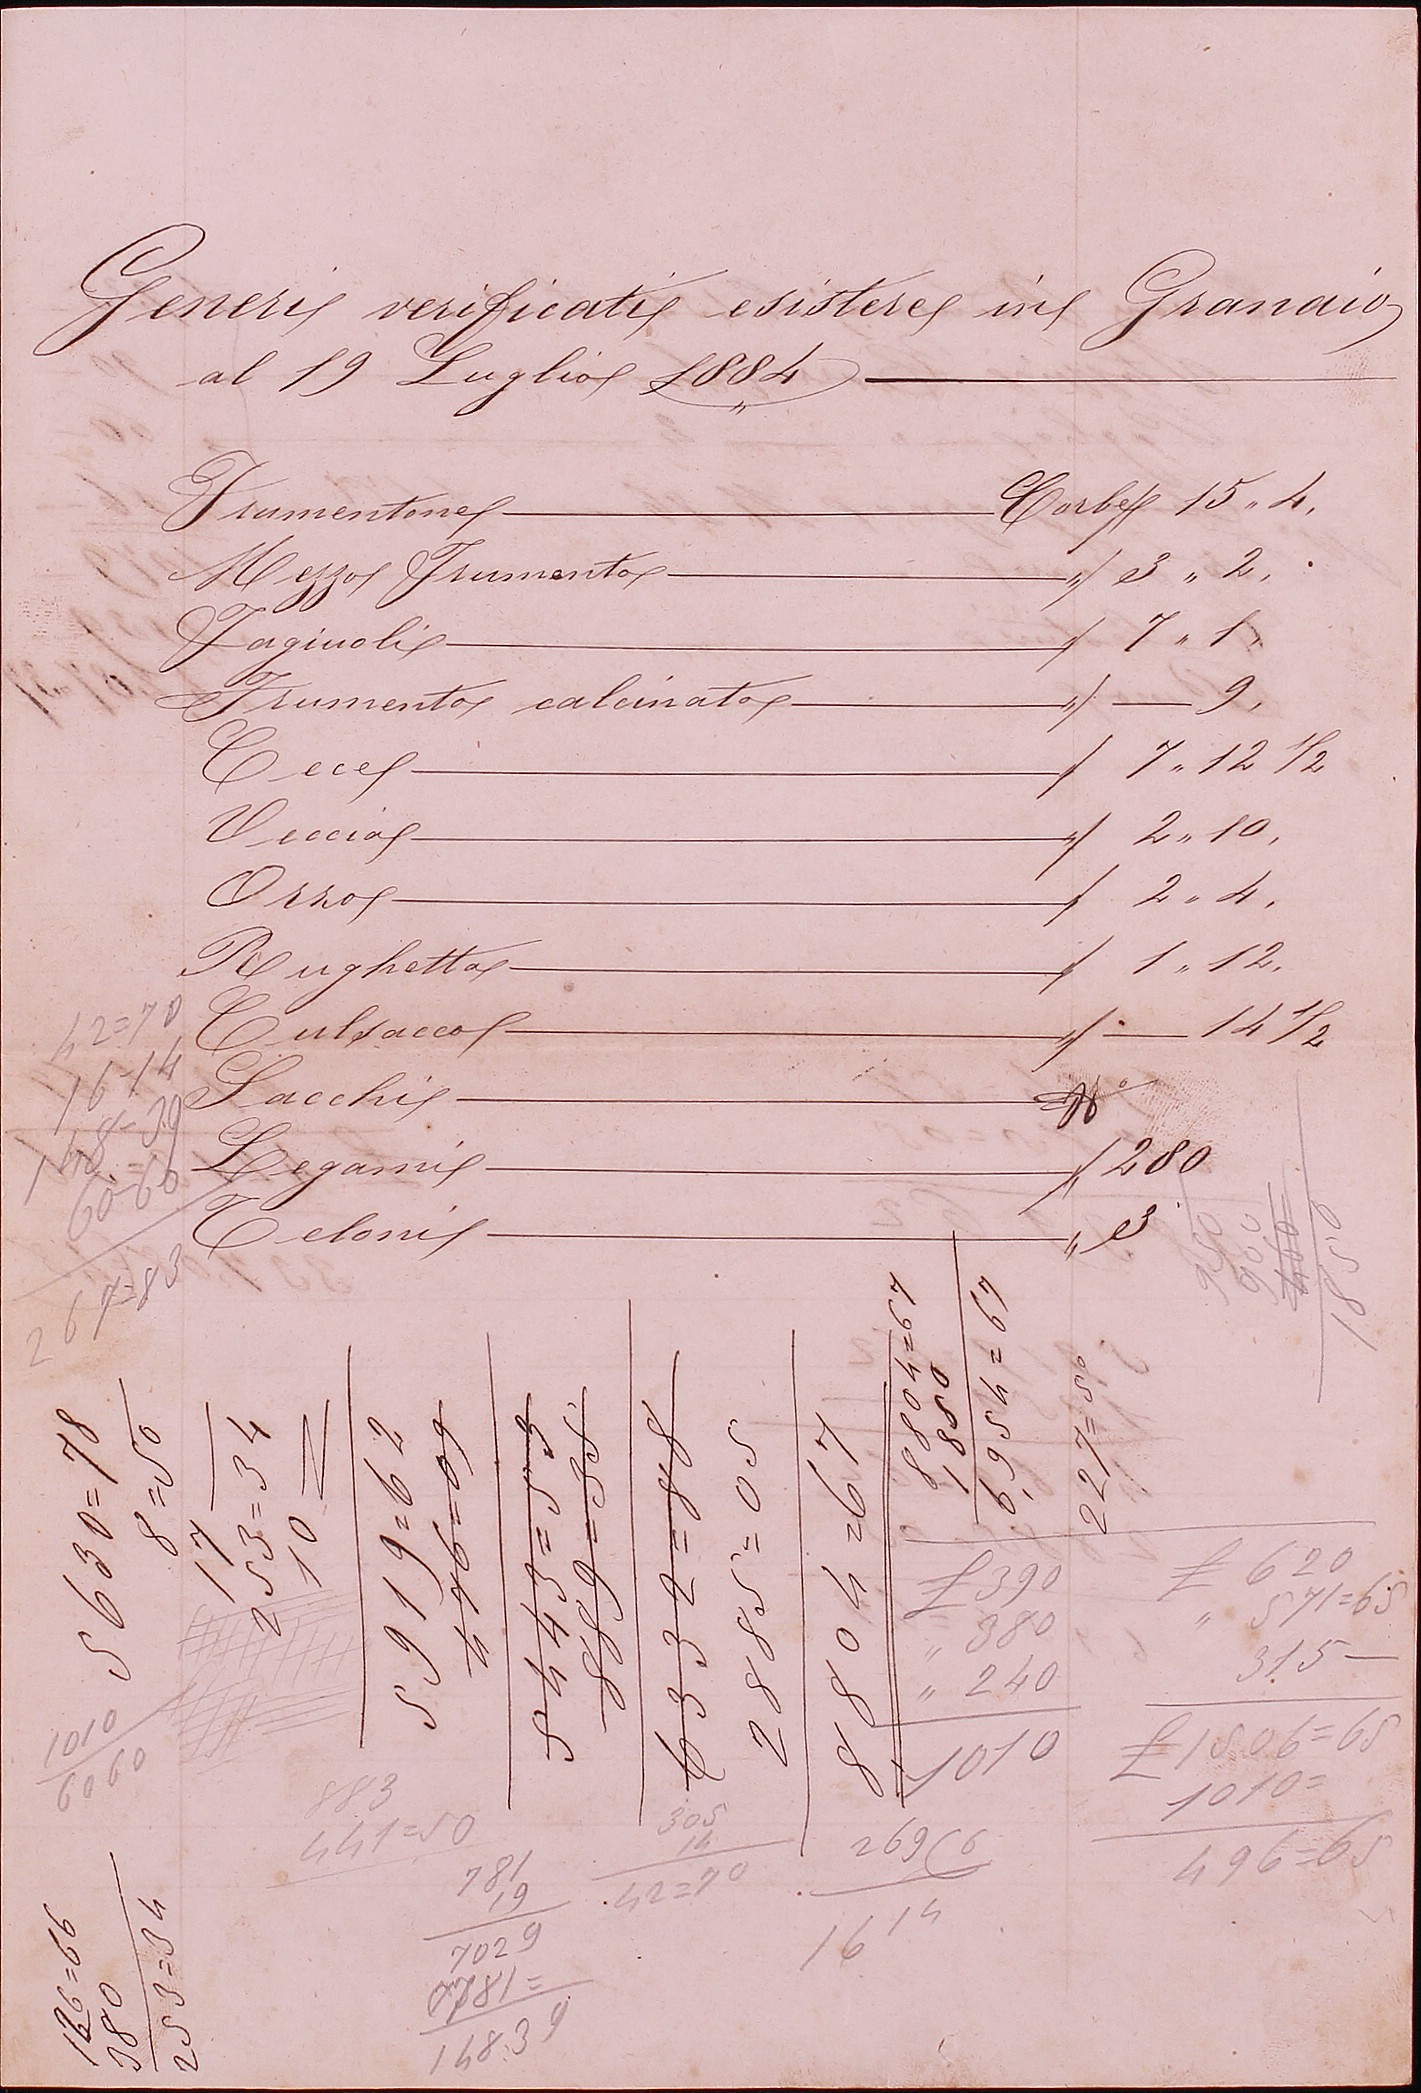 Generi verificati esistere in Granaio
al 19 Luglio 1884
Frumentone Corbe 15 " 4.
Mezzo Frumento " 3 " 2.
Fagiuoli " 7 " 1.
Frumento calcinato " — 9.
Cece " 7 " 12 1/2
Veccia " 2 " 10.
Orzo " 2 " 4.
Rughetta " 1 " 12.
Culsacco " — 14 1/2
Sacchi N°
Legami " 280
Teloni " 3
42=70
16-14
148=39
60-60
267=83
950
900
400
1850
5630=78
8=50
17
253=34
10
5919=62
476=09
5443=53
889=35
6332=88
2885=05
8804=67
8804=67
1880
6954=67
227=50
£ 390
" 380
" 240
1010
£ 620
" 571=65
315—
£ 1506=65
1010=
496=65
1010
6060
883
441=50
781
19
7029
781=
148.39
305
14
42=70
269 6
16 14
126=66
380
253=34